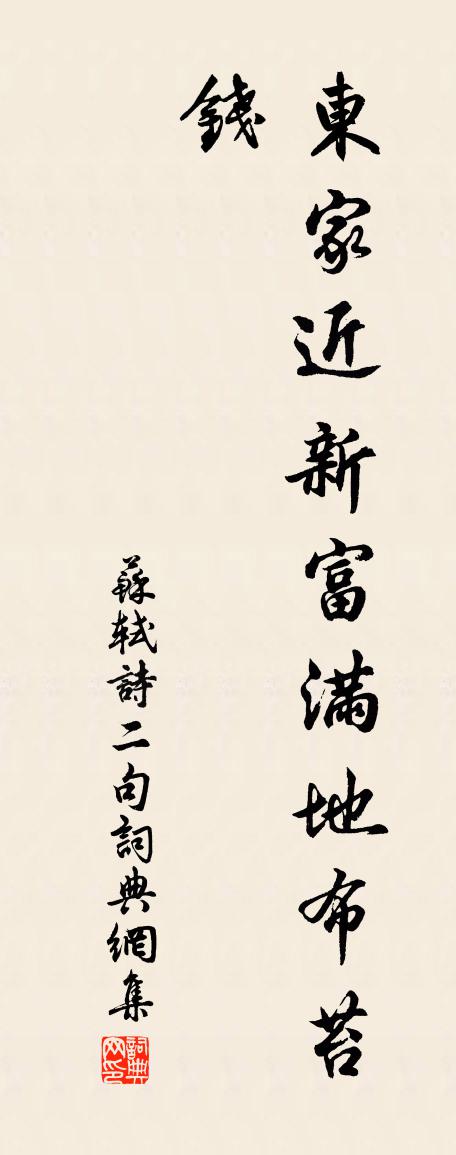 東家近新富滿地布苔
錢
蘇軾詩二句詞典網集
詞典网印